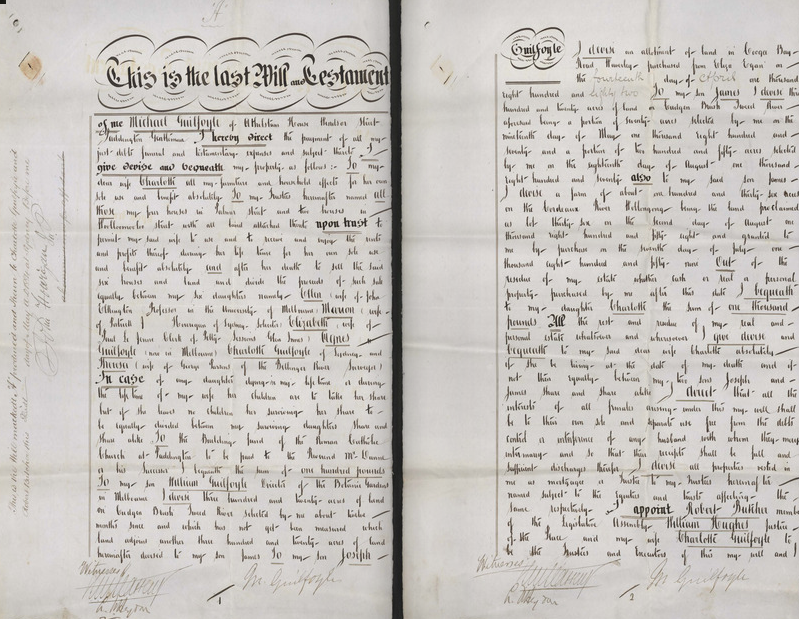 "A"
This is the last Will and Testament
of me Michael Guilfoyle of Athelstan House Windsor Street
Paddington Gentleman I hereby direct the payment of all my
just debts funeral and testamentary expenses and subject thereto I
give devise and bequeath my property as follows :- To my
dear wife Charlotte all my furniture and household effects for her own
sole use and benefit absolutely To my Trustees hereinafter named all
those my four houses in Palmer Street and two houses in
Woolloomooloo Street with all land attached thereto upon trust to
permit my said wife to use and to receive and enjoy the rents
and profits thereof during her life time for her own sole use
and benefit absolutely and after her death to sell the said
six houses and land and divide the proceeds of such sale
equally between my six daughters namely Ellen (wife of John
Elkington Professor in the University of Melbourne) Marion (wife
of Patrick J Hourigan of Sydney Solicitor) Elizabeth (wife of
Clerk of Petty Sessions) Agnes
Guilfoyle (now in Melbourne) Charlotte Guilfoyle of Sydney and
Theresa (wife of George Parsons of the Bellinger River Surveyor)
In case of my daughter dying in my life time or during
the life time of my wife her children are to take her share
but if she leaves no children her surviving her share to
be equally divided between my surviving daughters share and
share alike To the Building fund of the Roman Catholic
Church at Paddington to be paid to the Reverend Mr
or his Successor I bequeath the sum of one hundred pounds
To my son William Guilfoyle Director of the Botanic Gardens
in Melbourne I devise three hundred and twenty acres of land
on Cudgen Brush Tweed River selected by me about twelve
months since and which has not yet been measured which
land adjoins another three hundred and twenty acres of land
hereinafter devised to my son James To my son Joseph
Witnesses
M. Guilfoyle
1
Guilfoyle
I devise an allotment of land in Coogee Bay
Road Waverley purchased from Eliza Egan on
the fourteenth day of April one thousand
eight hundred and eighty two To my son James I devise three
hundred and twenty acres of land on Cudgen Brush Tweed River
aforesaid being a portion of seventy acres selected by me on the
nineteenth day of May one thousand eight hundred and
seventy and a portion of two hundred and fifty acres selected
by me on the eighteenth day of August one thousand
eight hundred and seventy also to my said son James
I devise a farm of about one hundred and thirty six acres
on the Bordeaux River Wollongong being the land proclaimed
as lot thirty six on the second day of August one
thousand eight hundred and fifty eight and granted to
me by purchase on the seventh day of July one
thousand eight hundred and fifty nine Out of the
residue of my estate whether cash or real or personal
property purchased by me after this date I bequeath
to my daughter Charlotte the sum of one thousand
pounds All the rest and residue of my real and
personal estate whatsoever and wheresoever I give devise and
bequeath to my said dear wife Charlotte absolutely
if she be living at the date of my death and if
not then equally between my two sons Joseph and
James share and share alike I direct that all the
interests of all females arising under this my will shall
be to their own sole and separate use free from the debts
control or interference of any husband with whom they may
intermarry and so that their receipts shall be full and
sufficient discharges therefor I devise all properties vested in
me as mortgagee or Trustee to my Trustees hereinafter
named subject to the equities and trusts affecting the
same respectively I appoint Robert Butcher member
of the Legislative Assembly William Hughes Justice
of the Peace and my wife Charlotte Guilfoyle to
be the Trustees and Executors of this my will and I
Witnesses
M. Guilfoyle
2